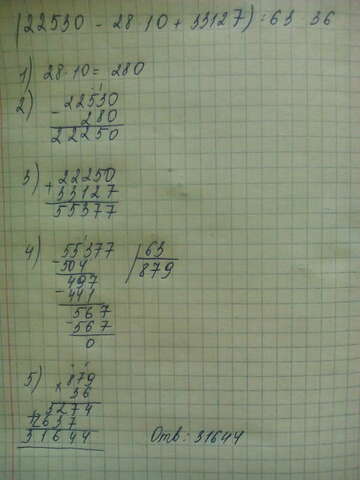 (22530 - 28·10 + 33127) : 63 · 36
1) 28·10 = 280
2) 22530
- 280
22250
3) 22250
+ 33127
55377
4) 55377 | 63
- 504 | 879
497
- 441
567
- 567
0
5) 879
× 36
5274
+ 2637
31644 Отв: 31644